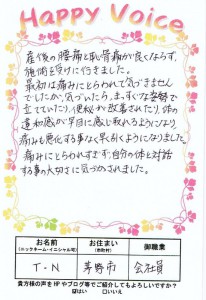 Happy Voice
産後の腰痛と恥骨痛が良くならず、
施術を受けに行きました。
最初は痛みにとらわれて気づきません
でしたが、気づいたら、まっすぐな姿勢で
立てていたり、便秘が改善されたり、体の
違和感が早目に感じ取れるようになり
痛みも悪化する事なく早く引くようになりました。
痛みにとらわれすぎず、自分の体と対話
する事の大切さに気づかされました。
お名前
(ニックネーム・イニシャル可)
お住まい
(市町村)
御職業
T・N
茅野市
会社員
貴方様の声をHPやブログ等でご紹介してもよろしいですか?
☑はい □いいえ